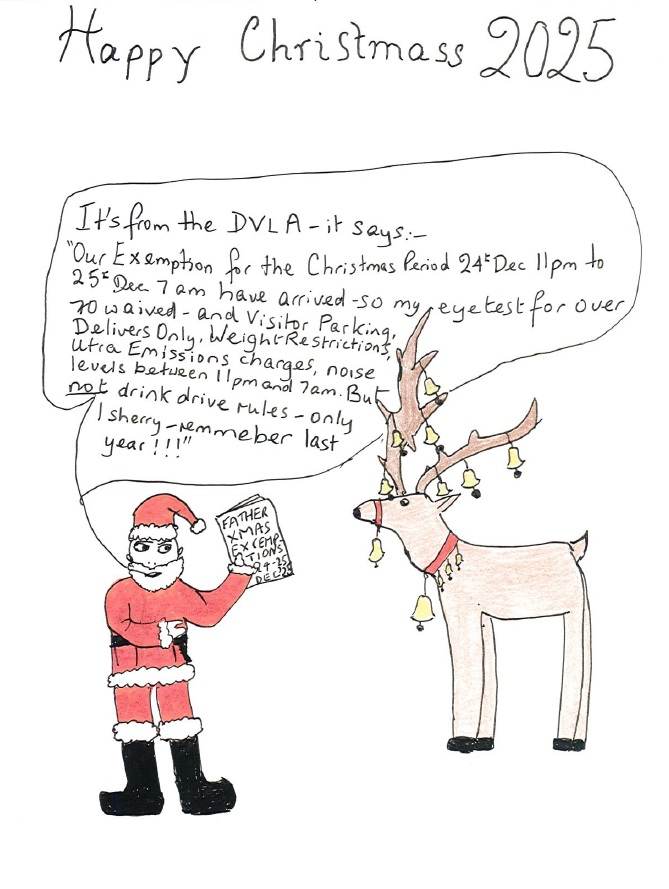 Happy Christmass 2025
It's from the DVLA - it says:-
"Our Exemption for the Christmas Period 24t Dec 11pm to
25t Dec 7am have arrived - so my eyetest for over
70 waived - and Visitor Parking,
Delivers Only, Weight Restrictions,
Utra Emissions charges, noise
levels between 11pm and 7am. But
not drink drive rules - only
1 sherry - remmeber last
year!!!"
FATHER
XMAS
EXCEMP
TIONS
24-25
DEC